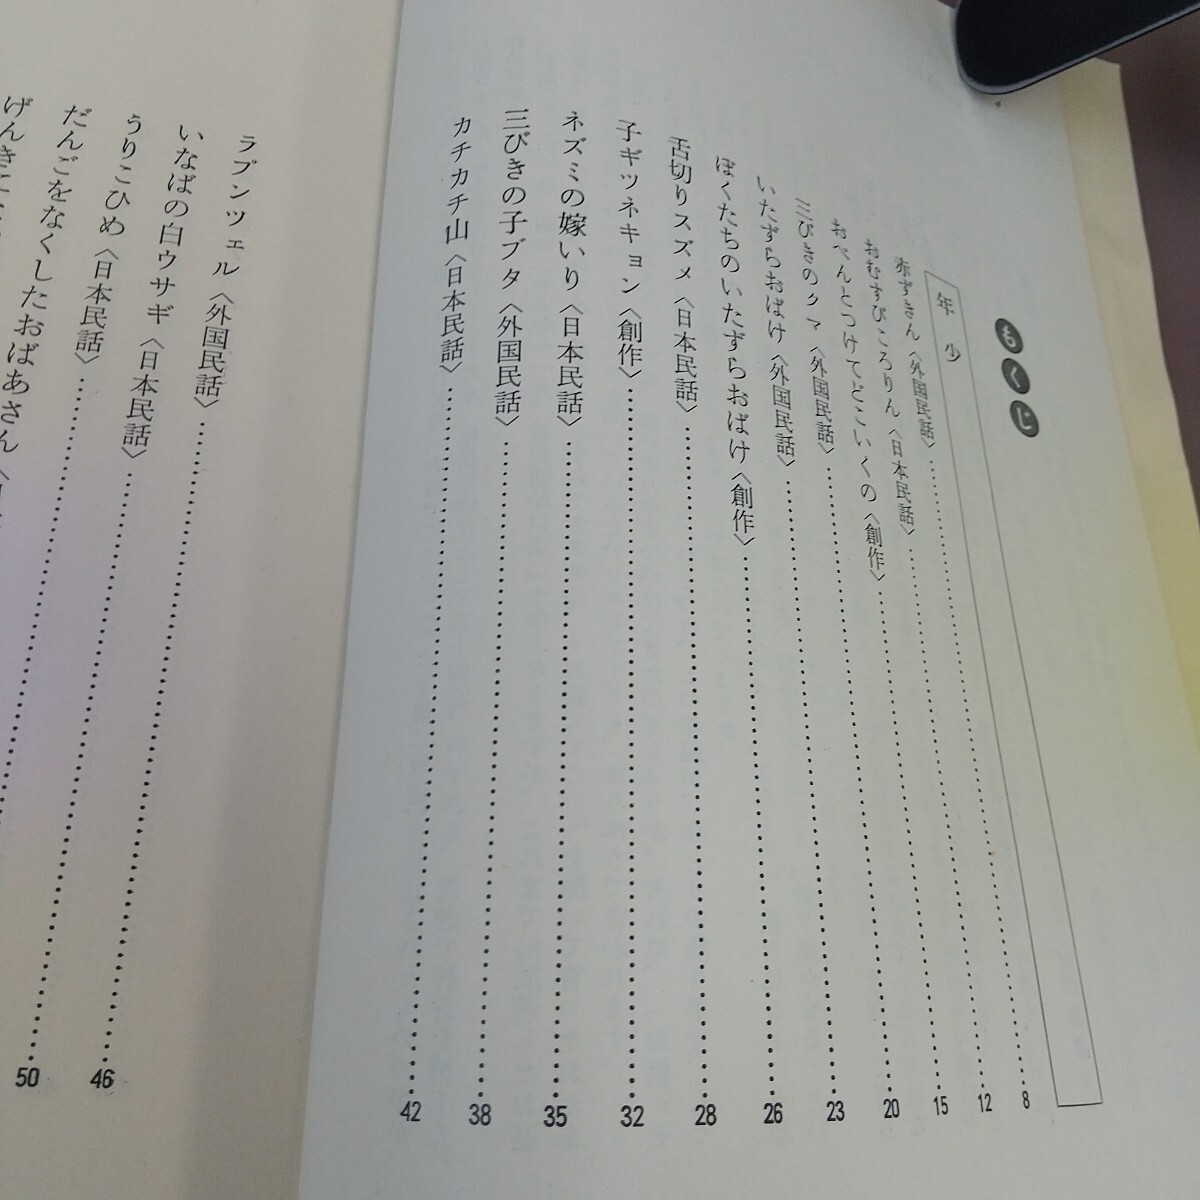 もくじ
年少
赤ずきん〈外国民話〉……8
おむすびころりん〈日本民話〉……12
おべんとつけてどこいくの〈創作〉……15
三びきのクマ〈外国民話〉……20
いたずらおばけ〈外国民話〉……23
ぼくたちのいたずらおばけ〈創作〉……26
舌切りスズメ〈日本民話〉……28
子ギツネキョン〈創作〉……32
ネズミの嫁いり〈日本民話〉……35
三びきの子ブタ〈外国民話〉……38
カチカチ山〈日本民話〉……42
ラプンツェル〈外国民話〉……46
いなばの白ウサギ〈日本民話〉……50
うりこひめ〈日本民話〉……
だんごをなくしたおばあさん〈
げんきに